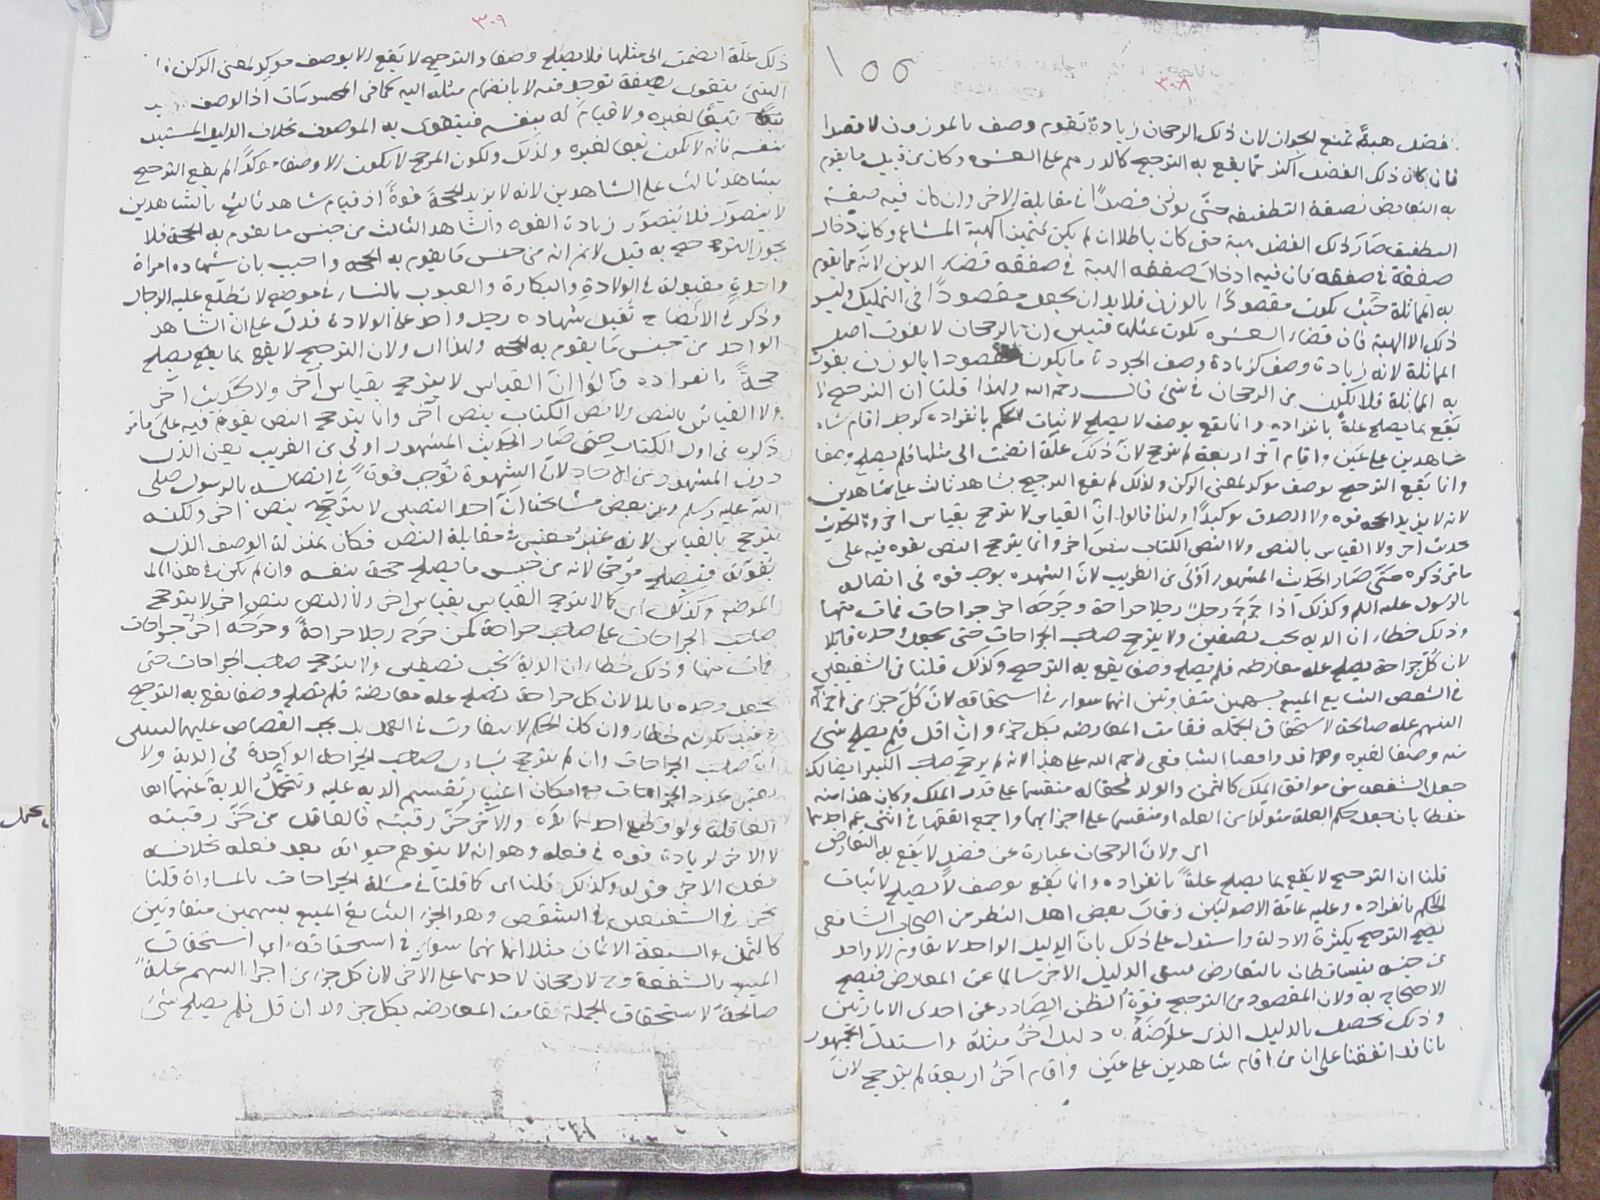 ١٥٥
٣٠٨
فضل هبة تمنع الجواز لان ذلك الرجحان زيادة تقوم وصف بالموزون لا قصدا
فان كان ذلك الفضل اكثر مما يقع به الترجيح كالدرهم على العشرة وكان من قبيل ما يقوم
به التعارض بصفة التطفيف حتى يكون فصلا في مقابلة الاخر وان كان فيه صيغة
التطفيف صار ذلك الفضل هبة حتى كان باطلا ان لم يكن متميزا كهبة المشاع وكان ادخال
صفقة في صفقة فان فيه ادخال صفقة الهبة في صفقة قضاء الدين لانه مما يقوم
به المماثلة حيث يكون مقصودا بالوزن فلا بد ان يجعل مقصودا في التمليك وليس
ذلك الا الهبة فان قضاء العشرة يكون بمثلها فتبين ان بالرجحان لا يفوت اصل
المماثلة لانه زيادة وصف كزيادة وصف الجودة وما يكون مقصودا بالوزن يفوت
به المماثلة فلا يكون من الرجحان في شئ قال رحمه الله ولهذا قلنا ان الترجيح لا
يقع بما يصلح علة بانفراده وانما يقع بوصف لا يصلح لاثبات الحكم بانفراده كرجل اقام
شاهدين على عين واقام اخر اربعة لم يترجح لان ذلك علة انضمت الى مثلها فلم يصلح وصفا
وانما يقع الترجيح بوصف موكد لمعنى الركن ولذلك لم يقع الترجيح بشاهد ثالث على شاهدين
لانه لا يزيد الحجة قوة ولا الصدق توكيدا ولهذا قالوا ان القياس لا يترجح بقياس اخر ولا الحديث
بحديث اخر ولا القياس بالنص ولا النص الكتاب بنص اخر وانما يترجح النص بقوة فيه على
ما مر ذكره حتى صار الحديث المشهور اولى من الغريب لان الشهرة توجب قوة في اتصاله
بالرسول عليه السلام وكذلك اذا جرح رجل رجلا جراحة وجرحه اخر جراحات فمات منها
وذلك خطاء ان الدية تجب نصفين ولا يترجح صاحب الجراحات حتى يجعل وحده قاتلا
لان كل جراحة يصلح علة معارضة فلم يصلح وصفا يقع به الترجيح وكذلك قلنا في الشفيعين
في الشقص الشايع المبيع بسهمين متفاوتين انهما سواء في استحقاقه لان كل جزء من اجزاء
السهم علة صالحة لاستحقاق الجملة فقامت المعارضة بكل جزء وان اقل فلم يصلح شئ
منه وصفا لغيره وهذا قد وافقنا الشافعي رحمه الله على هذا لانه لم يرجح صاحب الكثير ايضا لكنه
جعل الشفعة من موافق الملك كالثمن والولد فجعله منقسما على قدر الملك وكان هذا منه
غلطا بان جعل حكم العلة متولدا من العلة او منقسما على اجزائها واجمع الفقهاء في ابني عم احدهما
اى ولان الرجحان عبارة عن فضل لا يقع به التعارض
قلنا ان الترجيح لا يقع بما يصلح علة بانفراده وانما يقع بوصف لا يصلح لاثبات
الحكم بانفراده وعليه عامة الاصوليين وقال بعض اهل النظر من اصحاب الشافعي
يصح الترجيح بكثرة الادلة واستدل على ذلك بان الدليل الواحد لا يقاومه الا واحد
من جنسه فيتساقطان بالتعارض فيبقى الدليل الآخر سالما عن المعارض فيصح
الاحتجاج به ولان المقصود من الترجيح قوة الظن الصادر عن احدى الامارتين
وذلك يحصل بالدليل الذى عاضده دليل اخر مثله واستدل الجمهور
بانا قد اتفقنا على ان من اقام شاهدين على عين واقام آخر اربعة لم يترجح لان
٣٠٩
ذلك علة انضمت الى مثلها فلا يصلح وصفا والترجيح لا يقع الا بوصف موكد لمعنى الركن
الشئ يتقوى بصفة توجد فيه لا بانضمام مثله اليه كما في المحسوسات اذ الوصف
تبعا لغيره ولا قيام له بنفسه فيتقوى به الموصوف بخلاف الدليل المستبد
بنفسه فانه لا يكون تبعا لغيره ولذلك ولكون المرجح لا يكون الا وصفا موكدا لم يقع الترجيح
بشاهد ثالث على الشاهدين لانه لا يزيد الحجة قوة اذ قيام شاهد ثالث بالشاهدين
لا يتصور فلا يتصور زيادة القوة والشاهد الثالث من جنس ما يقوم به الحجة فلا
يجوز الترجيح به قيل لا نم انه من جنس ما يقوم به الحجة واجيب بان شهادة امراة
واحدة مقبولة في الولادة والبكارة والعيوب بالنساء في موضع لا يطلع عليه الرجال
وذكر في الايضاح تقبل شهادة رجل واحد على الولادة فدل على ان الشاهد
الواحد من جنس ما يقوم به الحجة ولهذا اى ولان الترجيح لا يقع بما يصلح
حجة بانفراده قالوا ان القياس لا يترجح بقياس آخر ولا حديث آخر
ولا القياس بالنص ولا نص الكتاب بنص آخر وانما يترجح النص بقوة فيه على ما مر
ذكره في اول الكتاب حتى صار الحديث المشهور اولى من الغريب يعنى الذى
دون المشهور من الآحاد لان الشهرة توجب قوة في اتصاله بالرسول صلى
الله عليه وسلم وعن بعض مشايخنا ان احد النصين لا يترجح بنص آخر ولكنه
يترجح بالقياس لانه غير معتبر في مقابلة النص فكان بمنزلة الوصف الذى
يقويه فيصلح مرجحا لانه من جنس ما يصلح حجة بنفسه وان لم يكن في هذا
الموضع وكذلك اى كما لا يترجح القياس بقياس آخر ولا النص بنص آخر لا يترجح
صاحب الجراحات على صاحب جراحة كمن جرح رجلا جراحة وجرحه آخر جراحات
فمات منها وذلك خطاء ان الدية تجب نصفين ولا يترجح صاحب الجراحات حتى
يجعل وحده قاتلا لان كل جراحة تصلح علة معارضة فلم تصلح وصفا يقع به الترجيح
وقيد بكونه خطاء وان كان الحكم لا يتفاوت في العمد بل يجب القصاص عليهما ليبين
ان صاحب الجراحات وان لم يترجح يساوى صاحب الجراحة الواحدة في الدية ولا
يعتبر عدد الجراحات مع امكان اعتبار تقسيم الدية عليه وتتحمل الدية عنهما
العاقلة ولو قطع احدهما يده والآخر حز رقبته فالقاتل من حز رقبته
لا الآخر لزيادة قوة في فعله وهو انه لا يتوهم حيوته بعد فعله بخلاف
فعل الآخر قوله وكذلك قلنا اى كما قلنا في مسئلة الجراحات بالمساواة قلنا
نحن في الشفيعين في الشقص وهو الجزء الشايع المبيع بسهمين متفاوتين
كالثمن والسبعة الاثمان مثلا انهما سواء في استحقاقه اى استحقاق
المبيع بالشفعة ولا رجحان لاحدهما على الآخر لان كل جزء من اجزاء السهم علة
صالحة لاستحقاق الجملة فقامت المعارضة بكل جزء وان قل فلم يصلح شئ